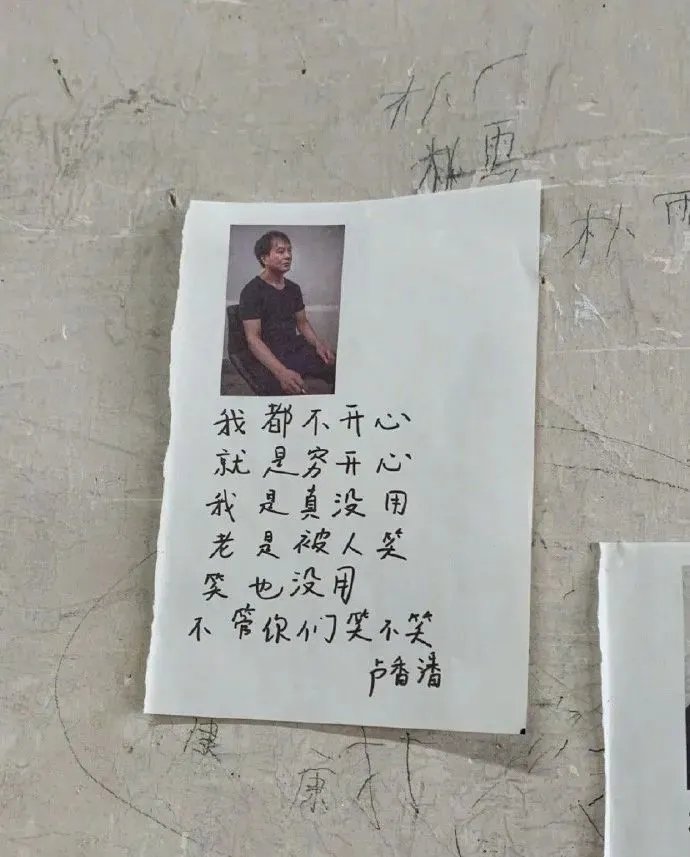 林雨
林雨
我都不开心
就是穷开心
我是真没用
老是被人笑
笑也没用
不管你们笑不笑
卢香潘
康
康